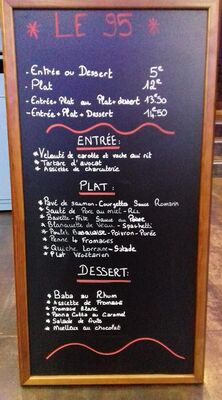 * LE 95 *
- Entrée ou Dessert 5€
- Plat 12€
- Entrée + Plat ou Plat + dessert 13€50
- Entrée + Plat + Dessert 14€50
ENTRÉE :
* Velouté de carotte et vache qui rit
* Tartare d'avocat
* Assiette de charcuterie
PLAT :
* Pavé de saumon - Courgettes Sauce Romarin
* Sauté de Porc au miel - Riz
* Bavette - Frite Sauce au Poivre
* Blanquette de Veau - Spaghetti
* Poulet Basquaise - Poivron - Purée
* Penne 4 Fromages
* Quiche Lorraine - Salade
* Plat Végétarien
DESSERT :
* Baba au Rhum
* Assiette de Fromage
* Fromage Blanc
* Panna Cotta au Caramel
* Salade de fruits
* Moelleux au chocolat